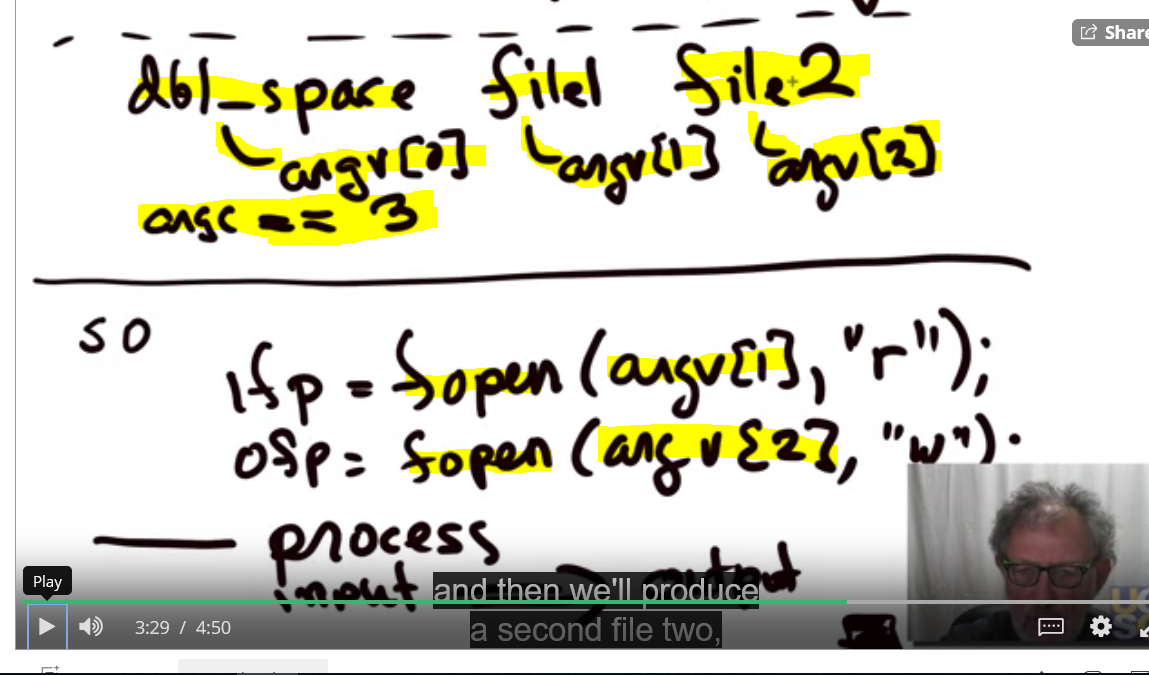 Share
dbl_space file1 file2
argv[0] argv[1] argv[2]
argc == 3
so
ifp = fopen (argv[1], "r");
ofp = fopen (argv[2], "w").
process
input => output
and then we'll produce
a second file two,
Play
3:29 / 4:50